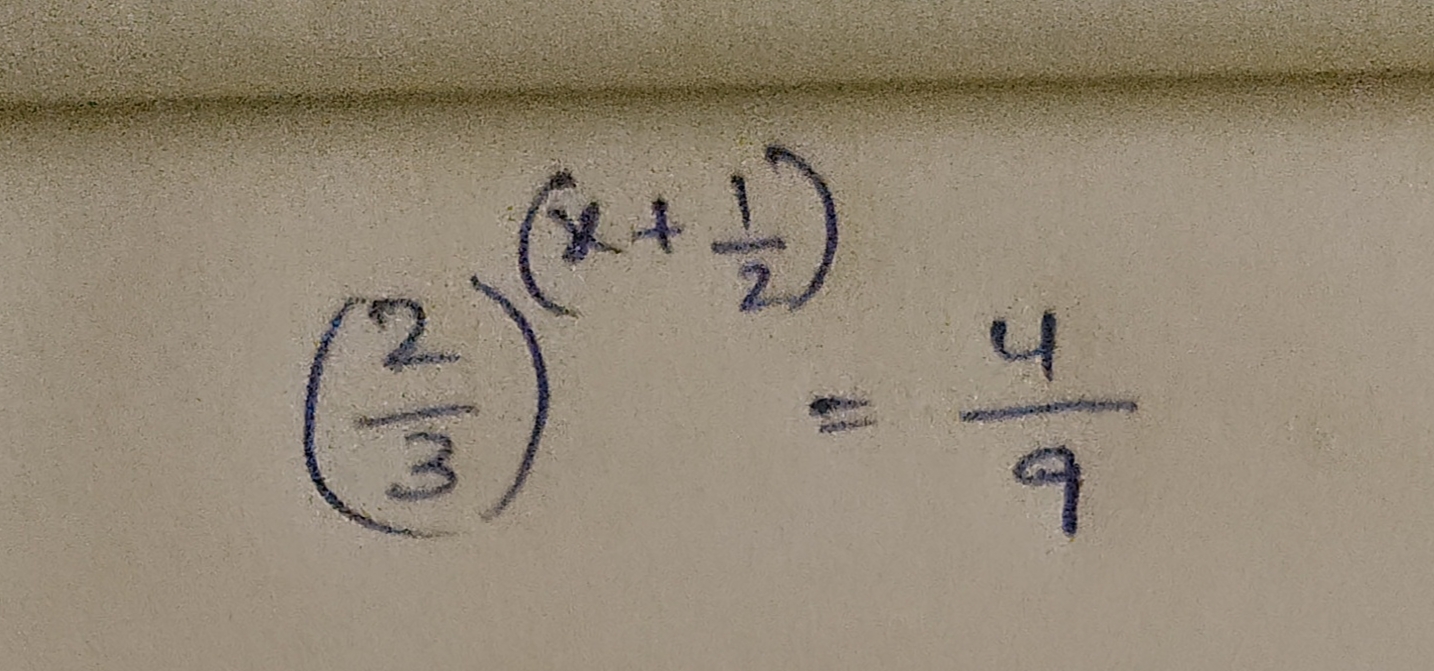 (2/3)^(x + 1/2) = 4/9